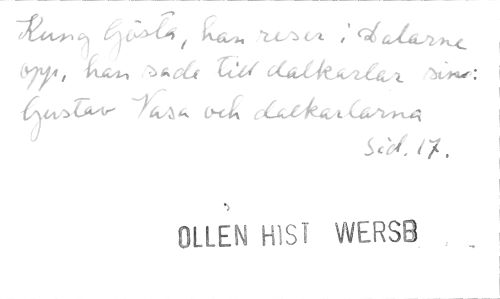 Kung Gösta, han reser i Dalarne
opp, han sade till dalkarlar sine:
Gustav Vasa och dalkarlarna
Sid. 17.
OLLEN HIST WERSB